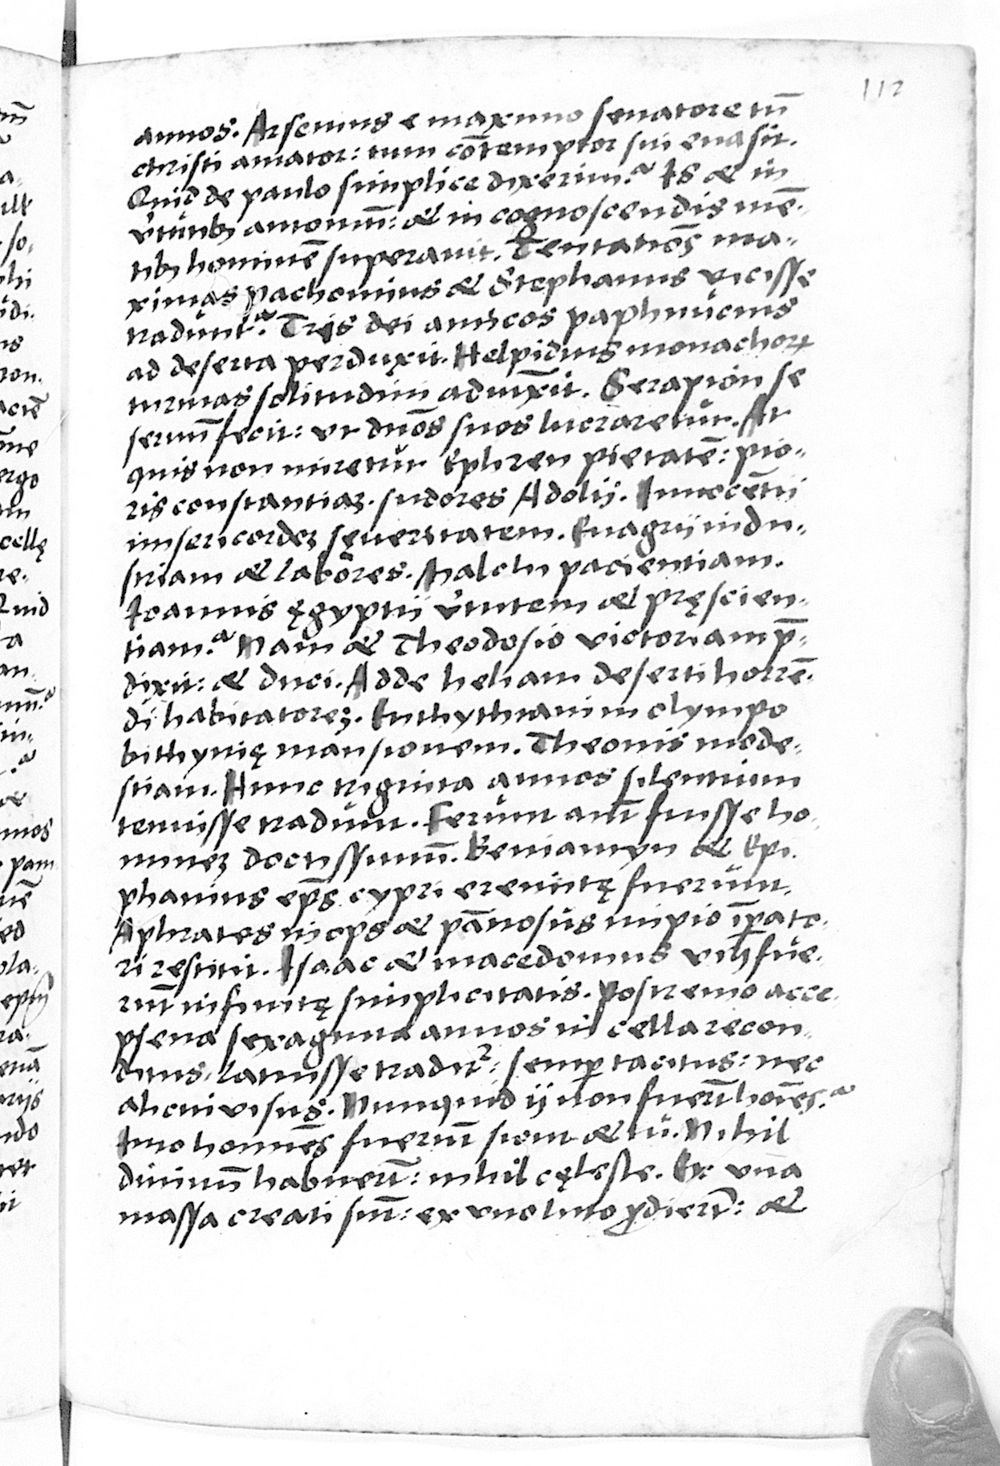 112
annos. Arsenius e maximo senatore tũ
christi amator: tum cõtemptor sui euasit.
Quid de paulo simplice dixerim? Is & in
v̄tutibȝ antoniũ: & in cognoscendis mẽ-
tibȝ hominẽ superauit. Tentatiões ma-
ximas pachomius & Stephanus vicisse
tradũnt? Trĩs dei amicos paphnucius
ad deserta perduxit. Helpidius monachoꝝ
turmas solitudini aduixit. Serapion se
seruũ fecit: vt dños suos lucraretur. At
quis non miretur Ephren pietatẽ: pio-
ris constantiaȝ. sudores Adolij. Innocẽtii
misericordeȝ sęueritatem. Euagrii indu-
striam & labores. Malchi pacientiam.
Ioannis ęgyptii v̄tutem & pręscien-
tiam? Nam & Theodosio victoriam p̄-
dixit: & duci. Adde heliam deserti horrẽ-
di habitatoreȝ. Enthythiani in olympo
bithynię mansionem. Theonis mode-
stiam. Hunc triginta annos silentium
tenuisse tradunt. Ferunt aũt fuisse ho-
mineȝ doctissimũ. Beniamyn & Epi-
phanius ep̃s cypri eremitę fuerunt.
Aphrates inops & pãnosus impio ĩꝑato-
ri restitit. Isaac & macedonius viri fue-
rũt infinitę simplicitatis. Postremo acce-
psena sexaginta annos in cella recon-
ditus, latuisse tradit̃: semꝑ tacitus: nec
alicui visus. Nunquid ij non fuerũt hoĩes?
Imo homiẽs fuerunt sicut & tu. Nihil
diuinũ habuerũt: nihil cęleste. Ex vna
massa creati sũt: ex vno limo ꝓdierũt: &